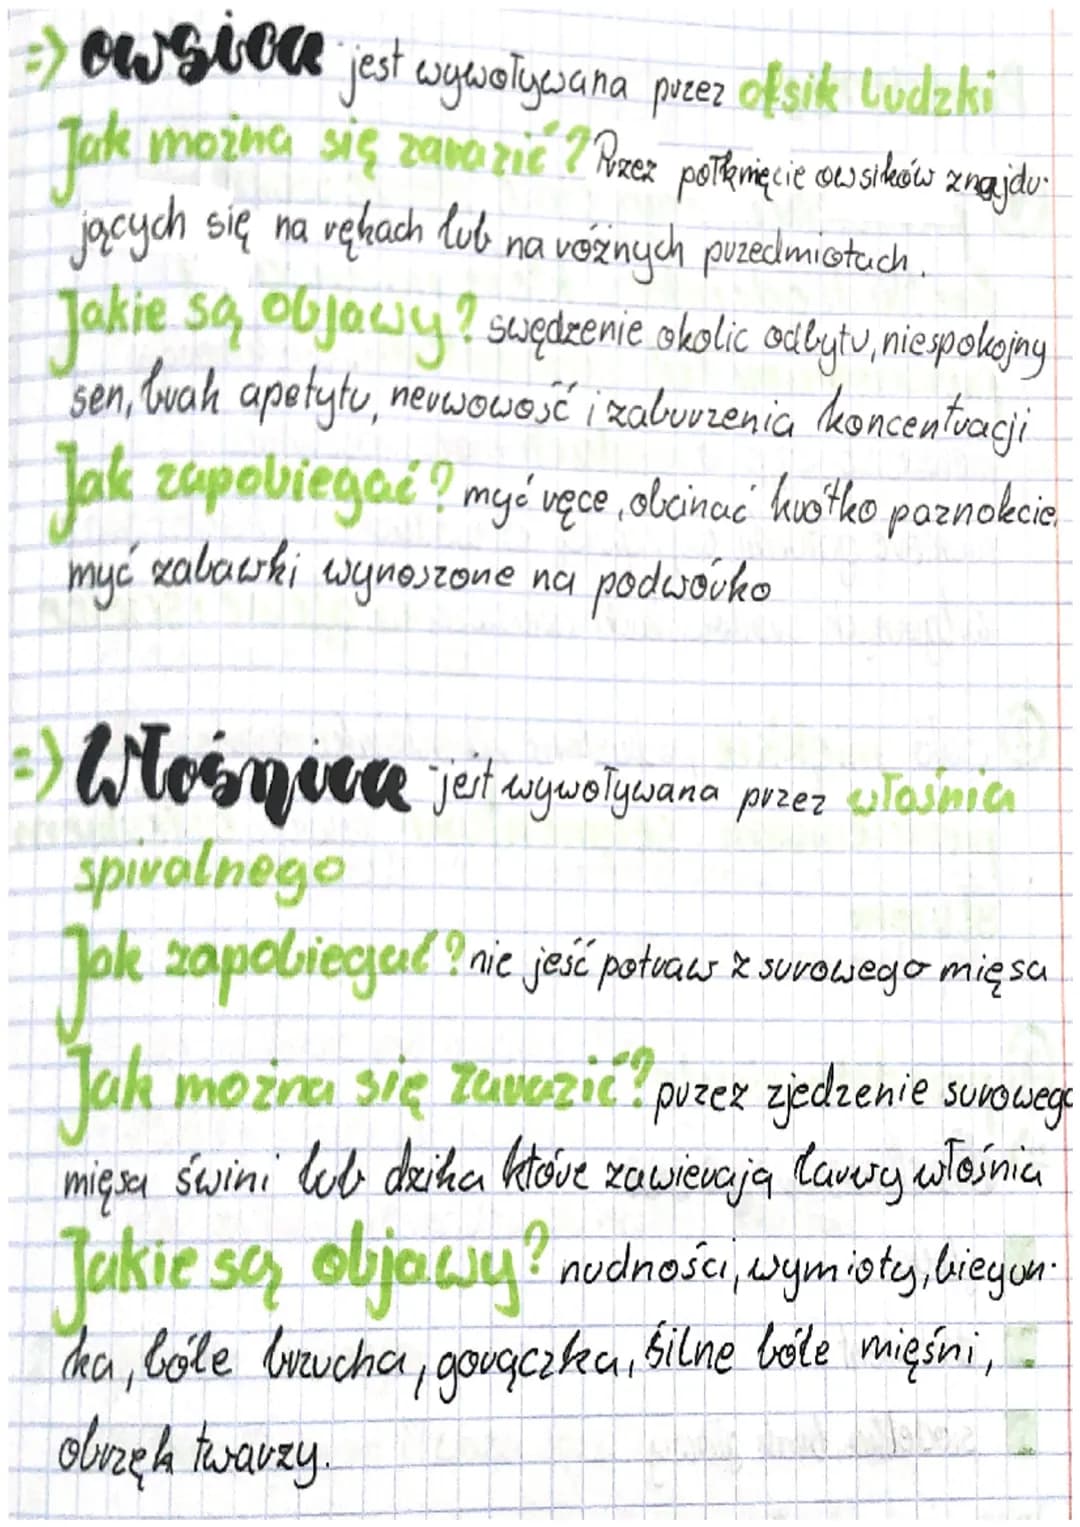 => owsica jest wywoływana przez ofsik ludzki
Jak można się zarazić? Przez połknięcie owsików znajdu-
jących się na rękach lub na różnych przedmiotach.
Jakie są objawy? swędzenie okolic odbytu, niespokojny
sen, brak apetytu, nerwowość i zaburzenia koncentracji
Jak zapobiegać? myć ręce, obcinać krótko paznokcie,
myć zabawki wynoszone na podwórko
=> Włośnica - jest wywoływana przez włośnia
spiralnego
Jak zapobiegać? nie jeść potraw z surowego mięsa
Jak można się zarazić? przez zjedzenie surowego
mięsa świni lub dzika które zawierają larwy włośnia
Jakie są objawy? nudności, wymioty, biegun-
ka, bóle brzucha, gorączka, silne bóle mięśni,
obrzęk twarzy.